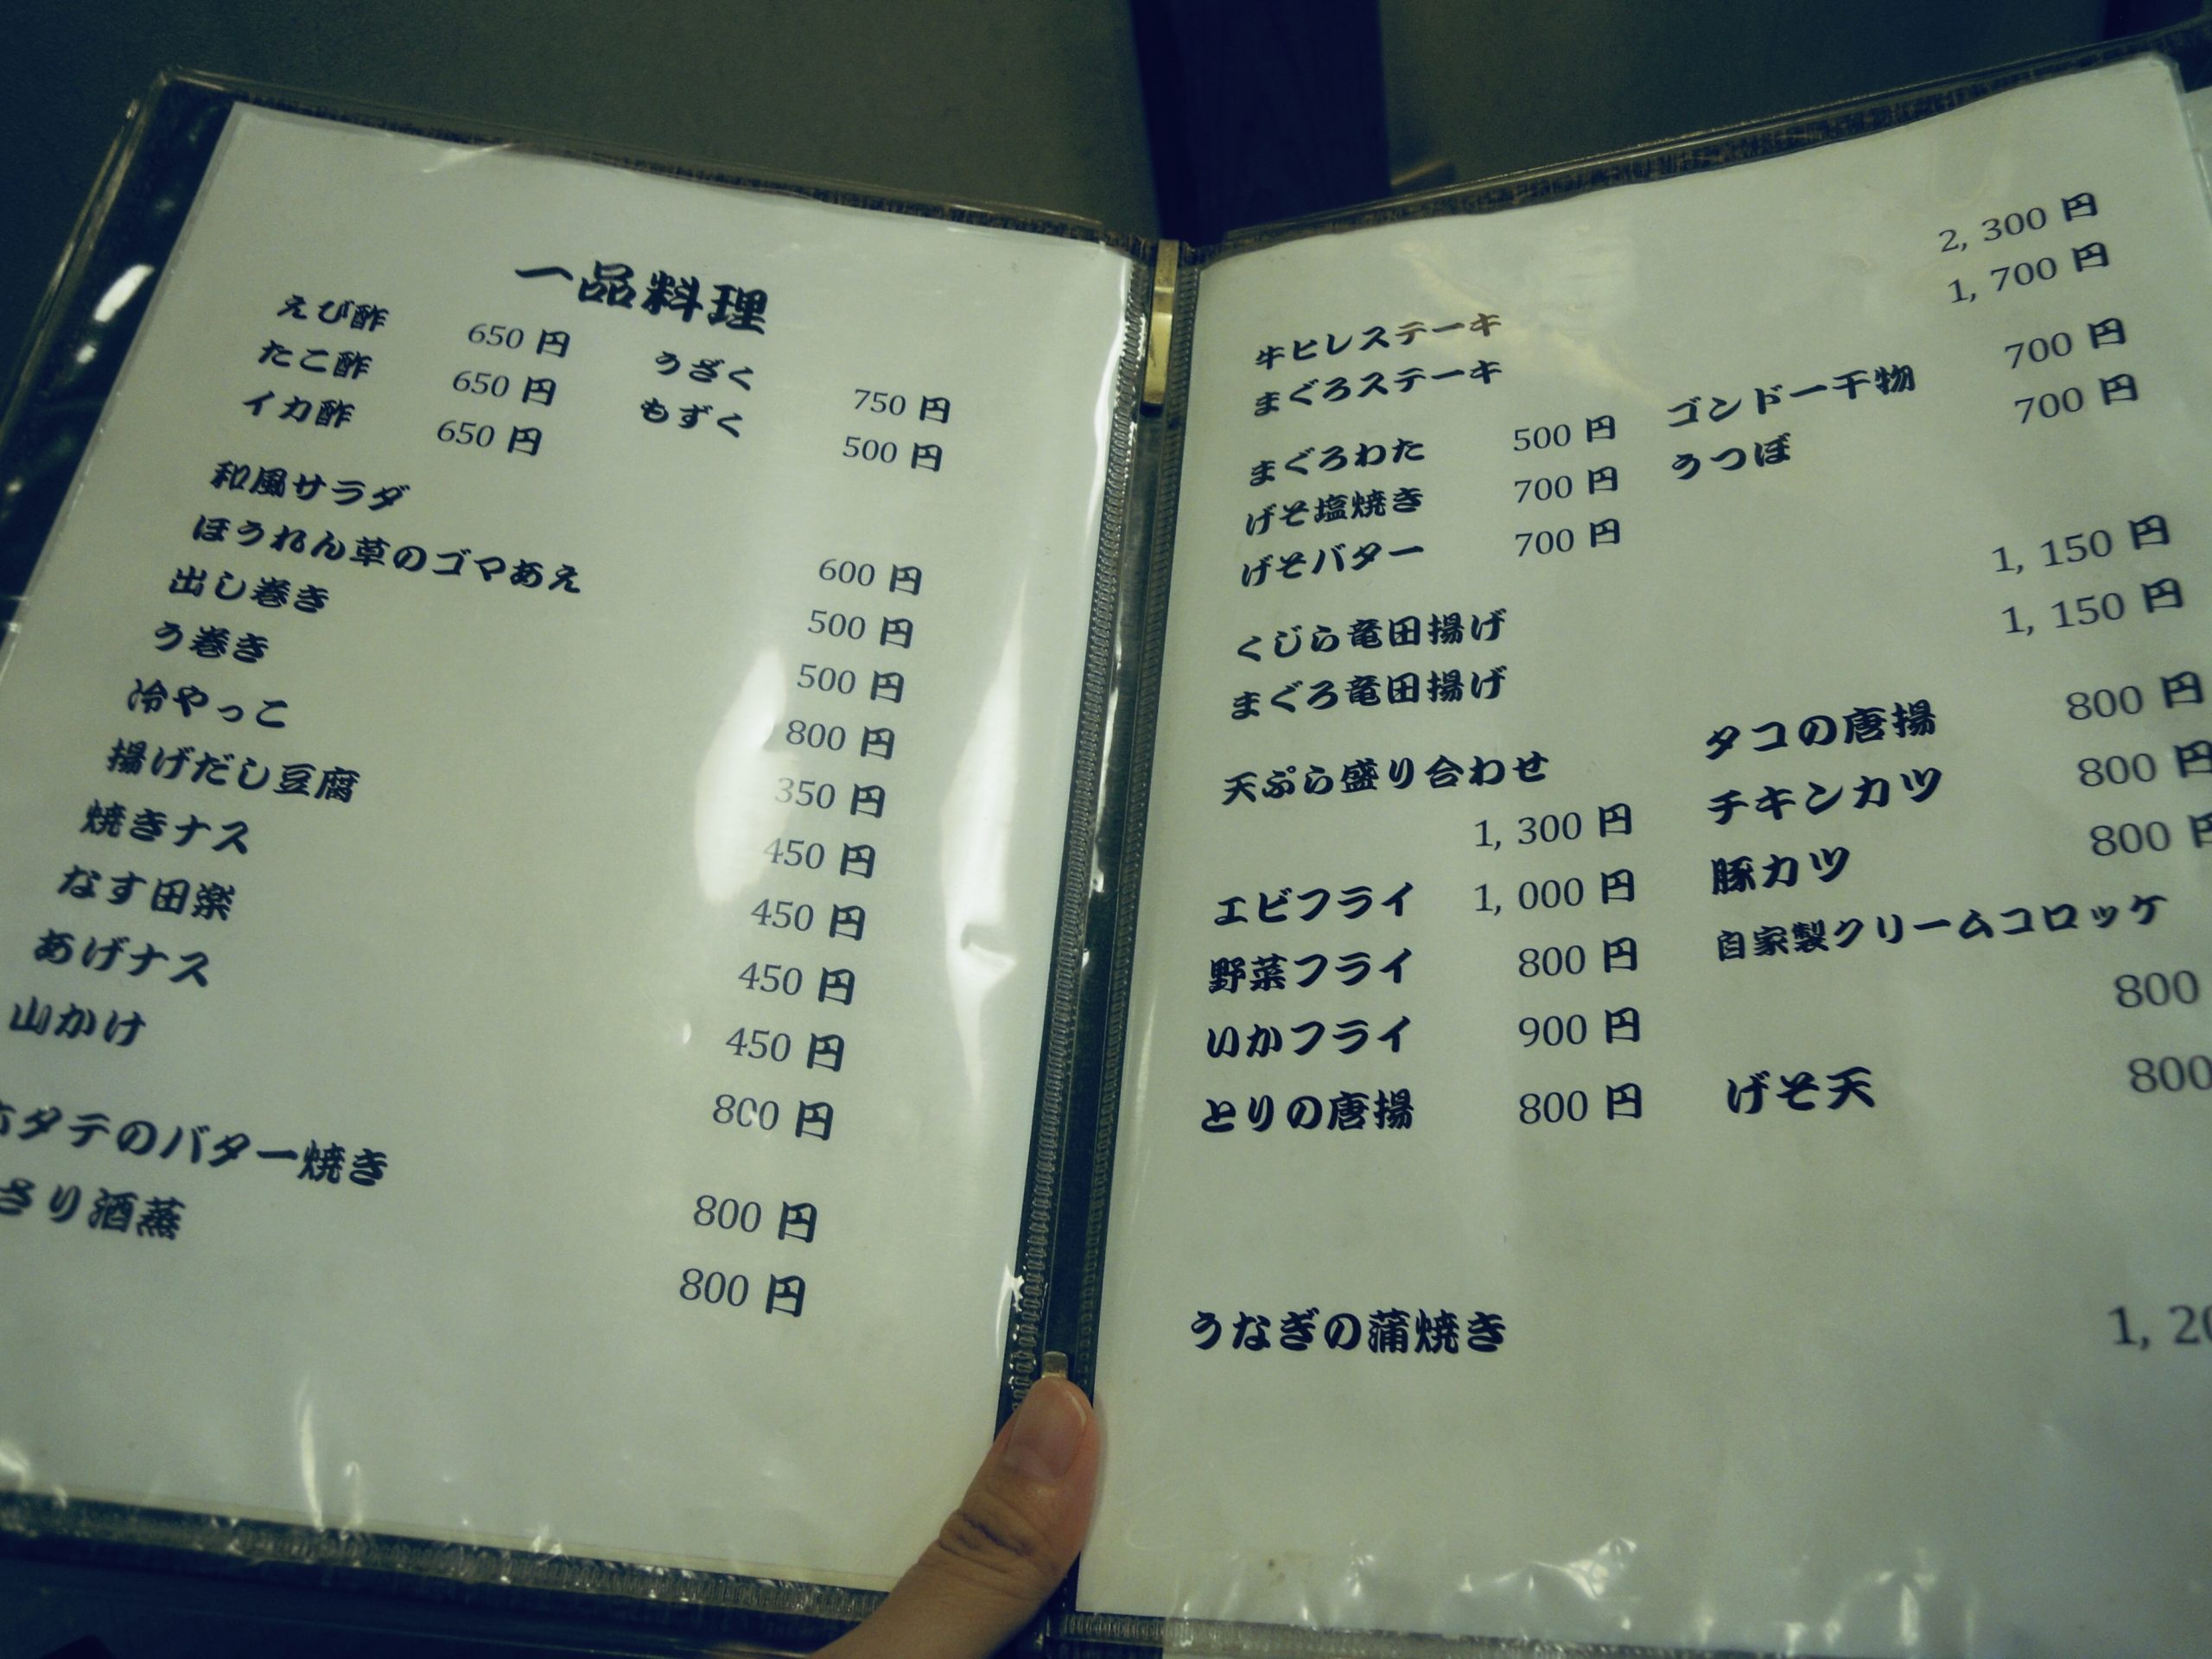 一品料理
えび酢 650 円 うざく 750 円
たこ酢 650 円 もずく 500 円
イカ酢 650 円
和風サラダ 600 円
ほうれん草のゴマあえ 500 円
出し巻き 500 円
う巻き 800 円
冷やっこ 350 円
揚げだし豆腐 450 円
焼きナス 450 円
なす田楽 450 円
あげナス 450 円
山かけ 800 円
ホタテのバター焼き 800 円
さり酒蒸 800 円
牛ヒレステーキ 2, 300 円
まぐろステーキ 1, 700 円
まぐろわた 500 円 ゴンドー干物 700 円
げそ塩焼き 700 円 うつぼ 700 円
げそバター 700 円
くじら竜田揚げ 1, 150 円
まぐろ竜田揚げ 1, 150 円
天ぷら盛り合わせ タコの唐揚 800 円
1, 300 円 チキンカツ 800 円
エビフライ 1, 000 円 豚カツ 800 円
野菜フライ 800 円 自家製クリームコロッケ
いかフライ 900 円 800
とりの唐揚 800 円 げそ天 800
うなぎの蒲焼き 1, 20